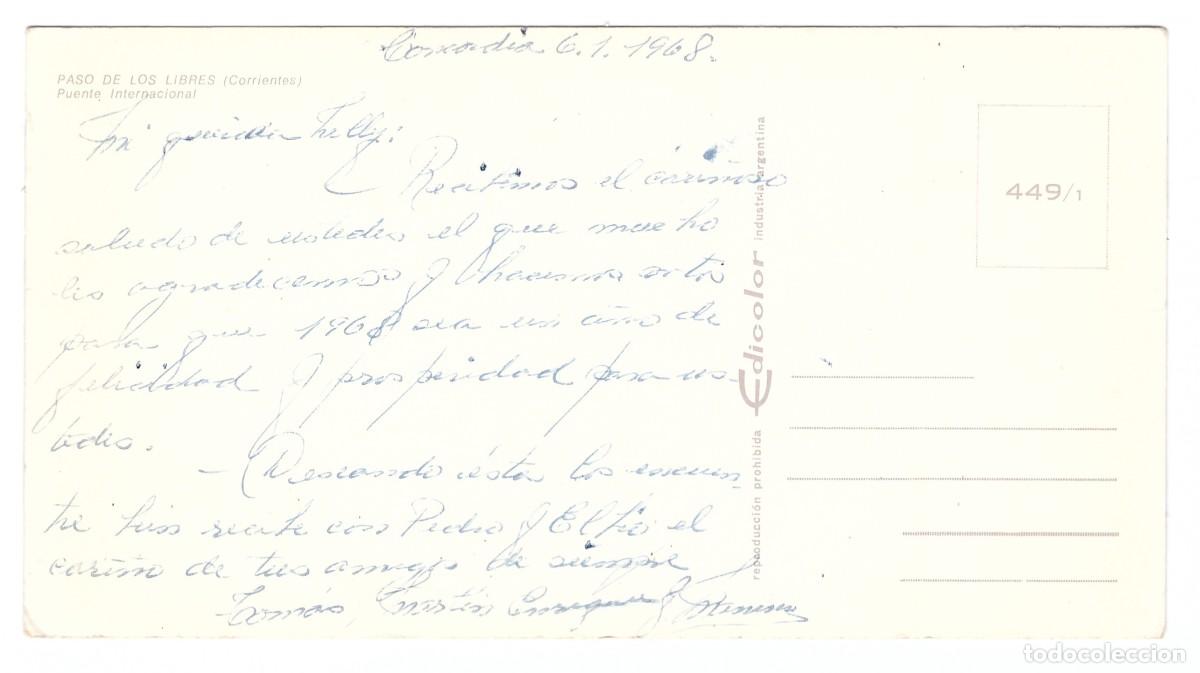 Concordia 6.1.1968.
PASO DE LOS LIBRES (Corrientes)
Puente Internacional
Mi querida Nelly:
Recibimos el cariñoso
saludo de ustedes el que mucho
les agradecemos y hacemos votos
para que 1968 sea un año de
felicidad y prosperidad para us-
tedes.
- Deseando ésta los encuen-
tre bien recibe con Pedro y El tío el
cariño de tus amigos de siempre
Tomás, Martín Enrique y
449/1
Edicolor industria argentina
reproducción prohibida
todocoleccion